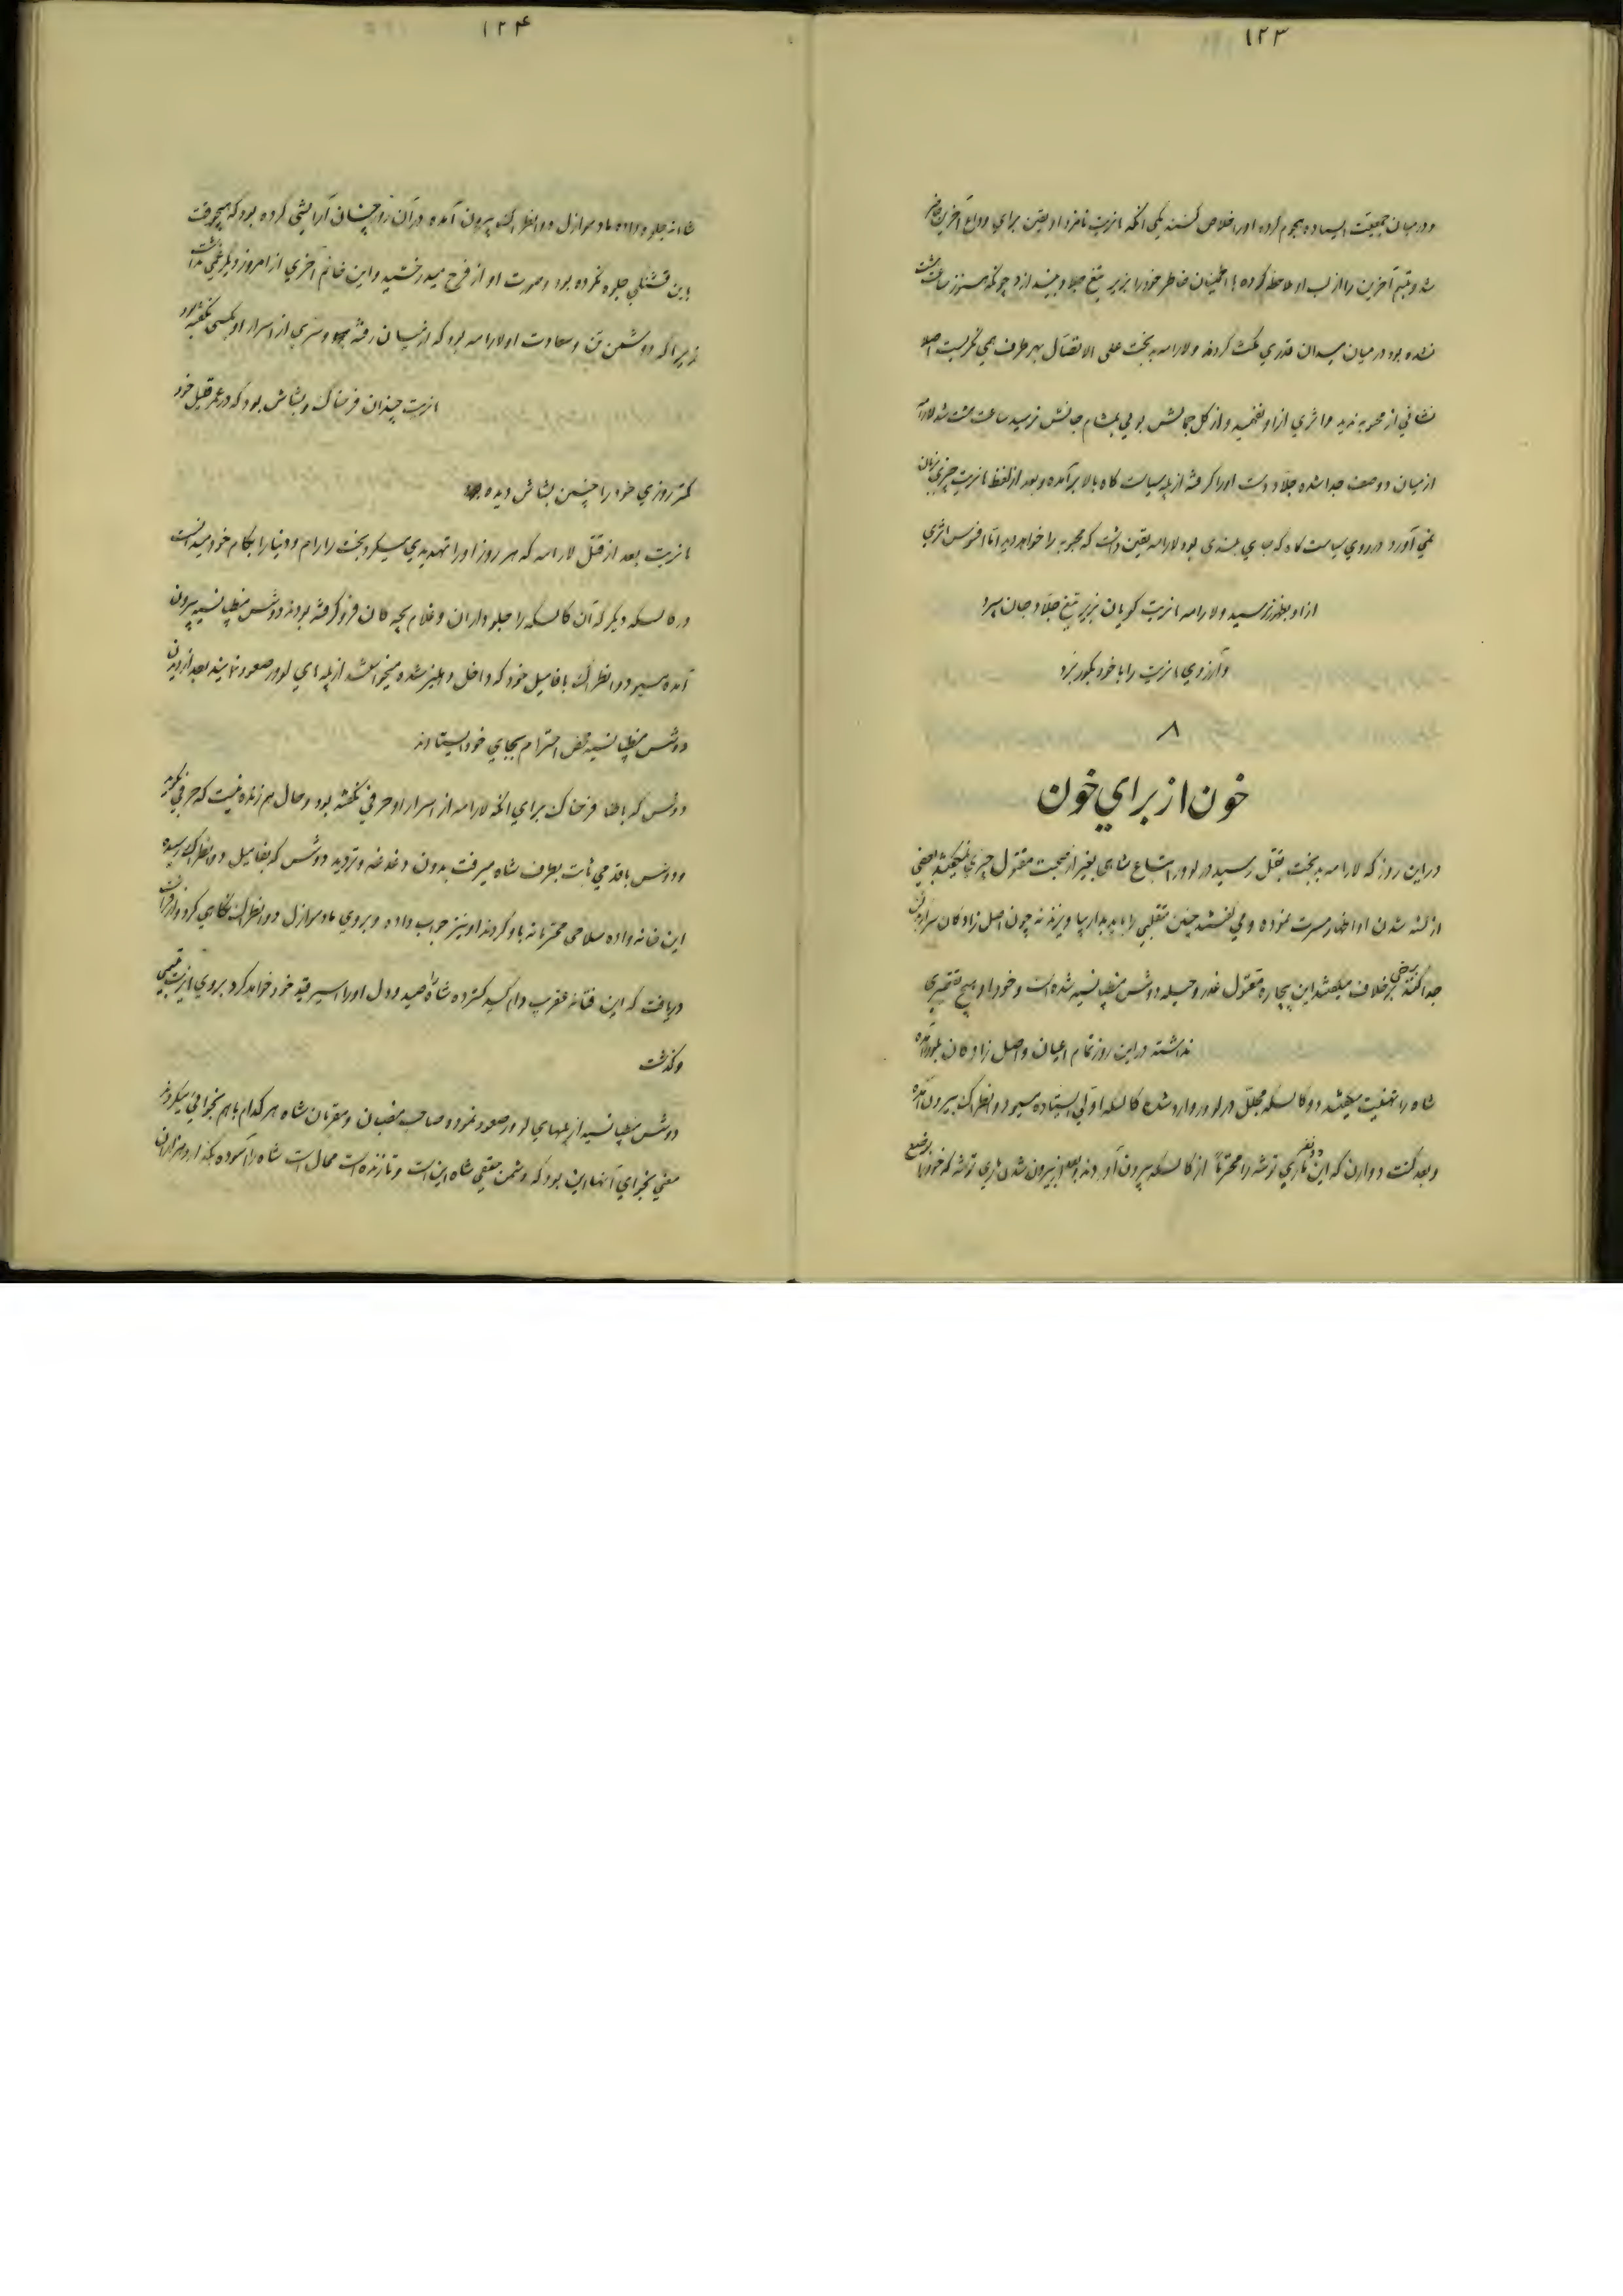 ١٢٣
و در میان جمعیت ایستاده هجوم کرده او را خلاص کنند یکی آنکه مانریت نامزد او یقین برای وداع آخرین حاضر
شد و تبسم آخرین را از لب او ملاحظه کرده با اطمینان خاطر خود را بزیر تیغ جلاد بیندازد چونکه هنوز ساعت هشت
نشده بود در میان میدان قدری مکث کردند و لارامه بدبخت علی الاتصال بهر طرف همی نگریست اصلا
نشانی از محبوبه ندید و اثری از او نفهمید و از گل جمالش بوئی بمشام جانش نرسید ساعت هشت شد لارامه
از میان دو صف جدا شده جلاد دست او را گرفته از پله سیاست گاه بالا برآمده و بعد از لفظ مانریت چیزی بزبان
نمی آورد در روی سیاست گاه که جای بلندی بود لارامه یقین داشت که محبوبه را خواهد دید اما افسوس اثری
از او بظهور نرسید و لارامه مانریت گویان بزیر تیغ جلاد جان سپرد
و آرزوی مانریت را با خود بگور برد
٨
خون از برای خون
در این روز که لارامه بدبخت بقتل رسید در لوور اتباع شاهی بغیر از صحبت مقتول چیزی نمیگفتند بعضی
از کشته شدن او اظهار مسرت نموده و می گفتند چنین متقلبی را باید بدار بیاویزند نه چون اصل زادگان سر از بدن
جدا کنند برخی برخلاف میگفتند این بیچاره مقتول غدر و حیله دوشس مطپانسیه شده است و خود او هیچ تقصیری
نداشته در این روز تمام اعیان و اصل زادگان بلوور آمده
شاه را تهنیت میگفتند دو کالسکه مجلل در لوور وارد شده کالسکه اولی ایستاده مسیو دوانطراک بیرون آمده
و بعد کنت دوارن که این دو نفر ماری توشه را محترماً از کالسکه بیرون آوردند و بعد از بیرون شدن ماری توشه که خود را بوضع
١٢٤
شاهانه جلوه داده مادموازل دوانطراک بیرون آمده در آن روز چنان آرایشی کرده بود که هیچوقت
باین قشنگی جلوه نکرده بود و صورت او از فرح میدرخشید و این خانم آخری از امروز دیگر غمی نداشت
زیرا که دشمن تن و سعادت او لارامه بود که از میان رفته و سری از اسرار او بکسی نگفته بود
مانریت چندان فرحناک و بشاش بود که در عمر قلیل خود
کمتر روزی خود را چنین بشاش دیده
مانریت بعد از قتل لارامه که هر روز او را تهدیدی میکرد بخت را رام و دنیا را بکام خود میدانست
در کالسکه دیگر که آن کالسکه را جلوداران و غلام بچه گان فرو گرفته بودند دوشس مطپانسیه بیرون
آمده مسیو دوانطراک با فامیل خود که داخل دهلیز شده میخواستند از پله های لوور صعود نمایند بعد از دیدن
دوشس مطپانسیه محض احترام بجای خود ایستادند
دوشس که باطنا فرحناک برای آنکه لارامه از اسرار او حرفی نگفته بود و حال هم زنده نیست که حرفی بگوید
دوشس با قدمی ثابت بطرف شاه میرفت بدون دغدغه و تردید دوشس که بفامیل دوانطراک رسیده
این خانه واده سلامی محترمانه باو کردند او نیز جواب داده و بروی مادموازل دوانطراک نگاهی کرد و از فراست
دریافت که این فتانه عنقریب دام گسترده شاه را صید و دل او را اسیر قید خود خواهد کرد بروی مانریت تبسمی
و گذشت
دوشس مطپانسیه از پلهای لوور صعود نمود و صاحب منصبان و مقربان شاه هر کدام باهم نجوائی میکردند
معنی نجوای آنها این بود که دشمن حقیقی شاه این است و تا زنده است محال است شاه را آسوده بگذارد هزاران